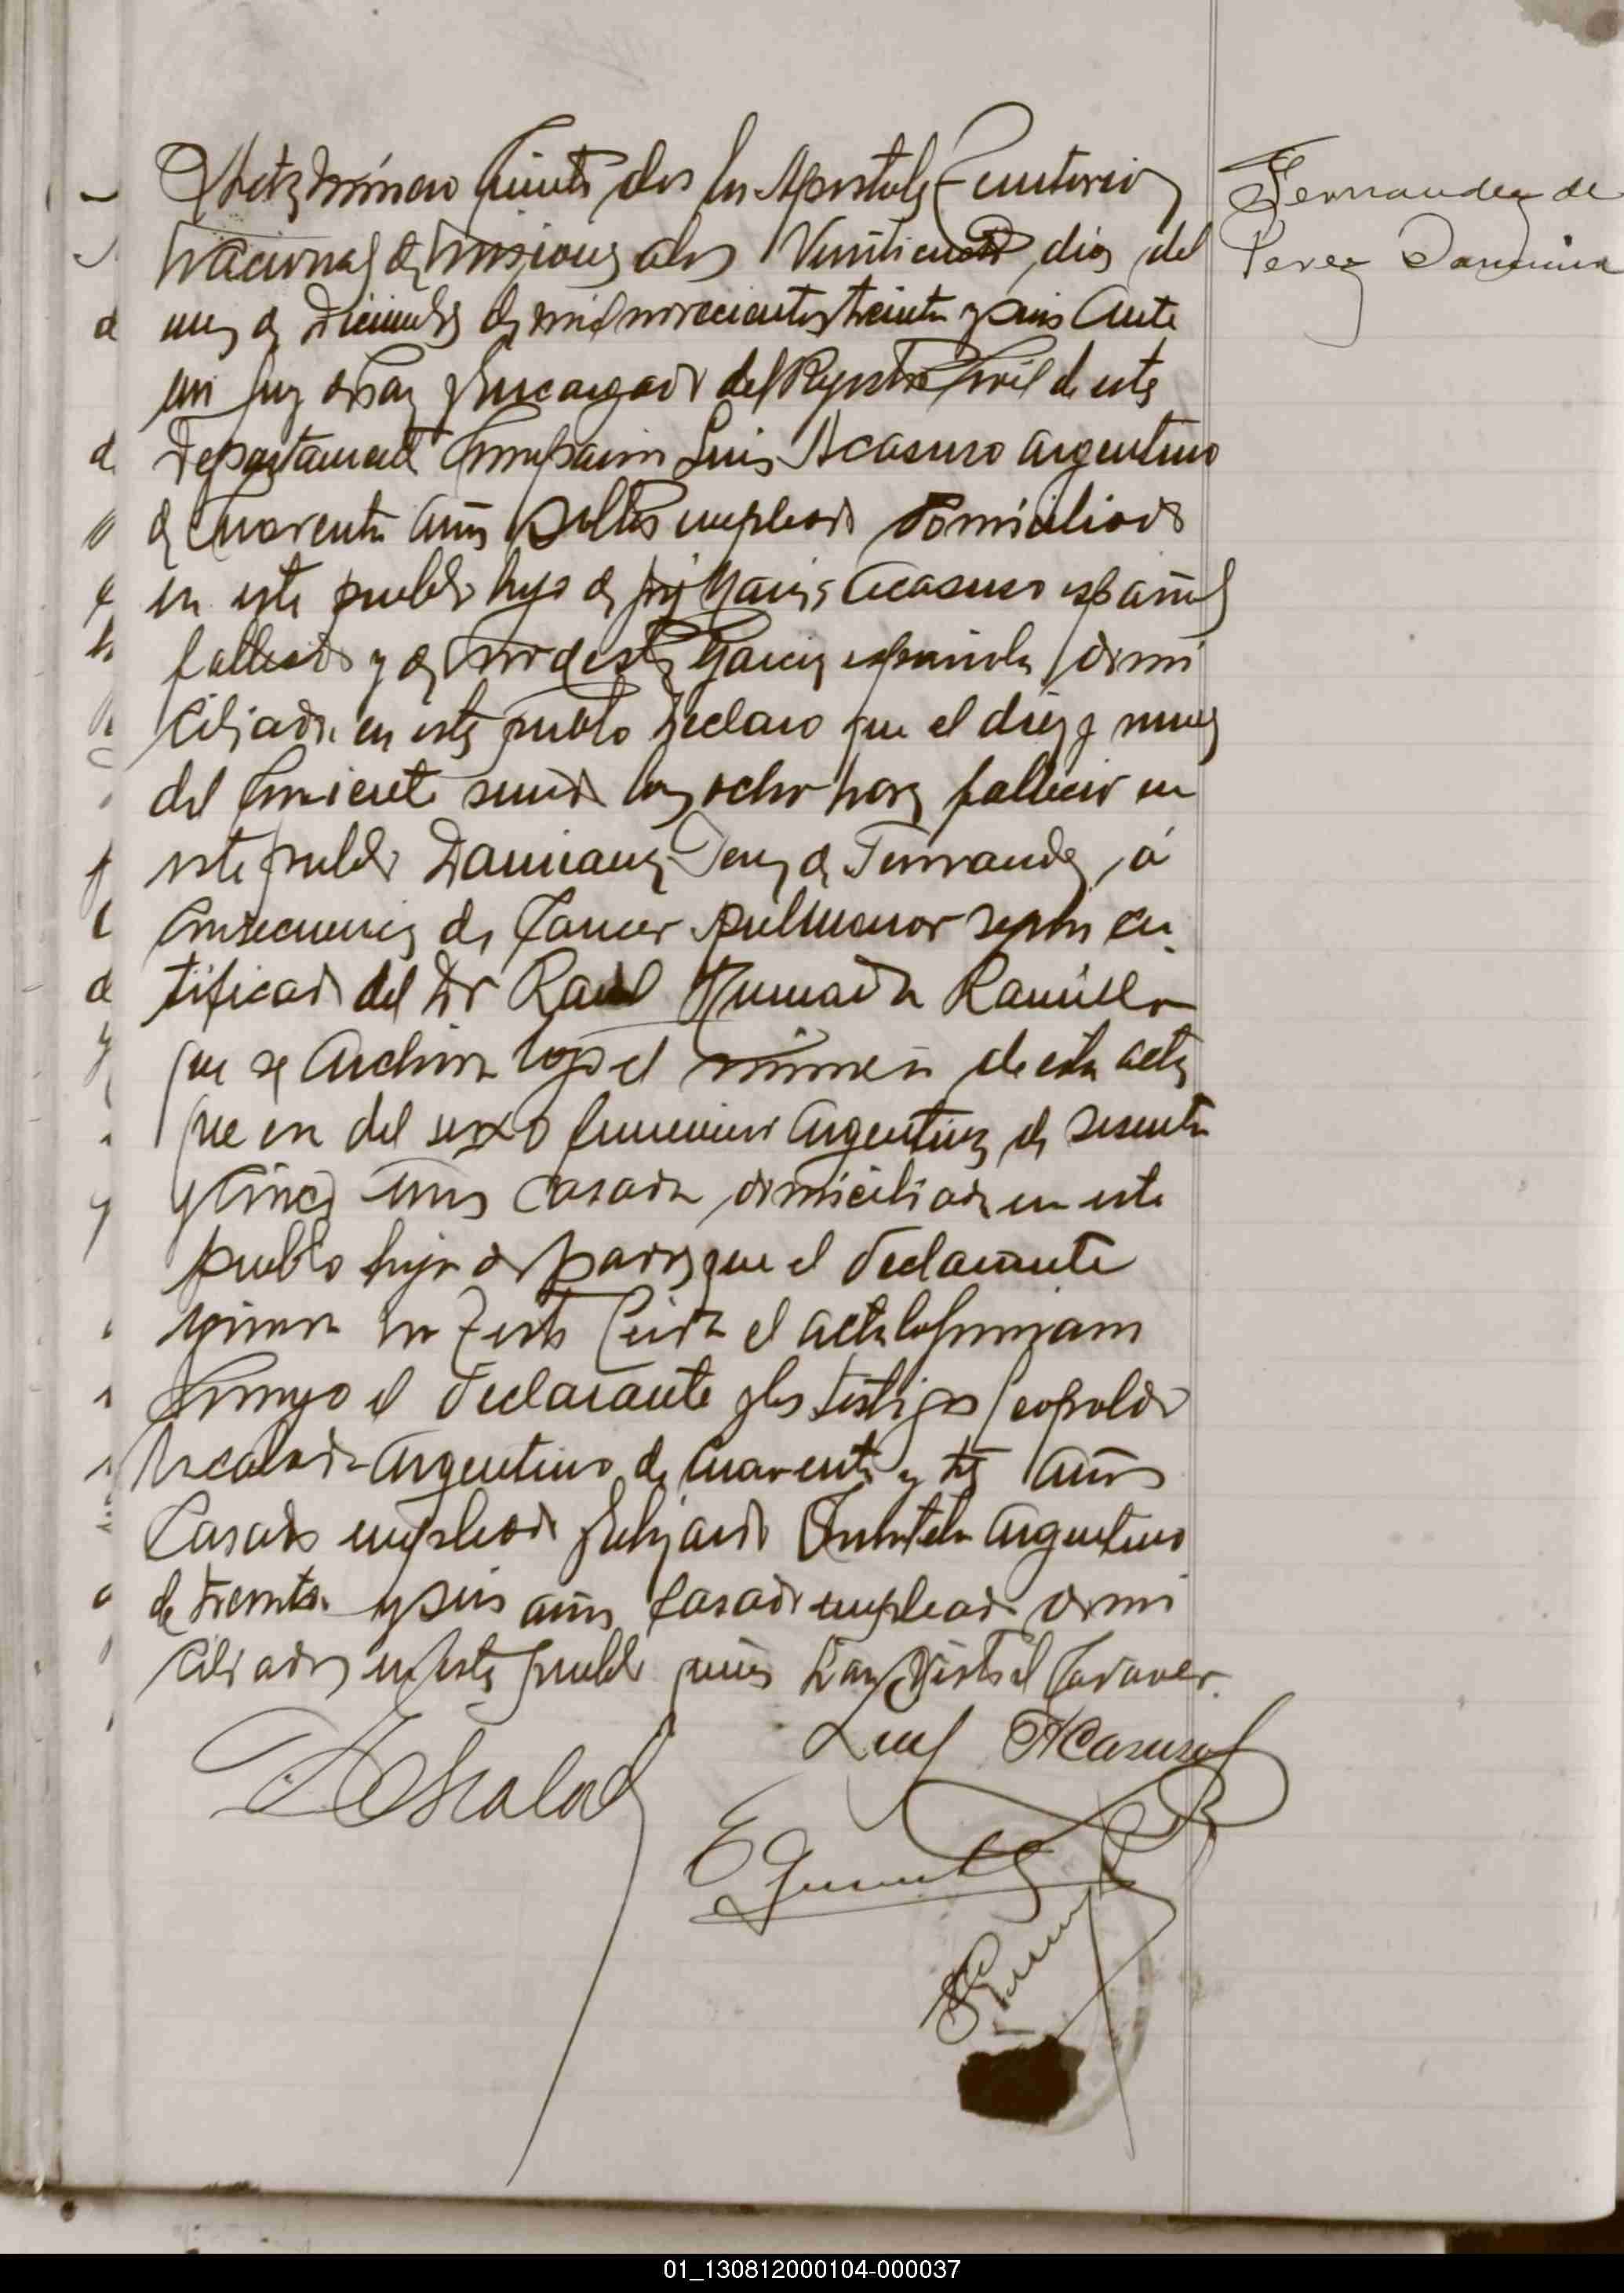 Acta número treinta dos En Apostoles Territorio
Nacional de Misiones a los Veinticuatro dias del
mes de Diciembre de mil novecientos treinta y seis Ante
mi Juez de Paz y Encargado del Registro Civil de este
Departamento Comparecio Luis Acasuso argentino
de Cuarenta años soltero empleado domiciliado
en este pueblo hijo de José Acasuso español
fallecido y de Modesta Garcia española domi
ciliada en este pueblo declaro que el diez y nueve
del Corriente siendo las ocho horas fallecio en
este pueblo Damiana Perez de Fernandez á
Consecuencia de Cancer pulmonar segun cer
tificado del Dr Raul Ramilla
que se Archiva bajo el número de esta acta
que era del sexo femenino Argentina de sesenta
y Cinco años casada domiciliada en este
pueblo hija de padres que el declarante
ignora Leida el acta la firmaron
Conmigo el declarante y los testigos Leopoldo
Escalada Argentino de cuarenta y tres años
Casado empleado y Quintela Argentino
de treinta y seis años Casado empleado domi
ciliados en este pueblo quienes han visto el Cadaver.
Fernandez de
Perez Damiana
Luis Acasuso
L Escalada
01_130812000104-000037